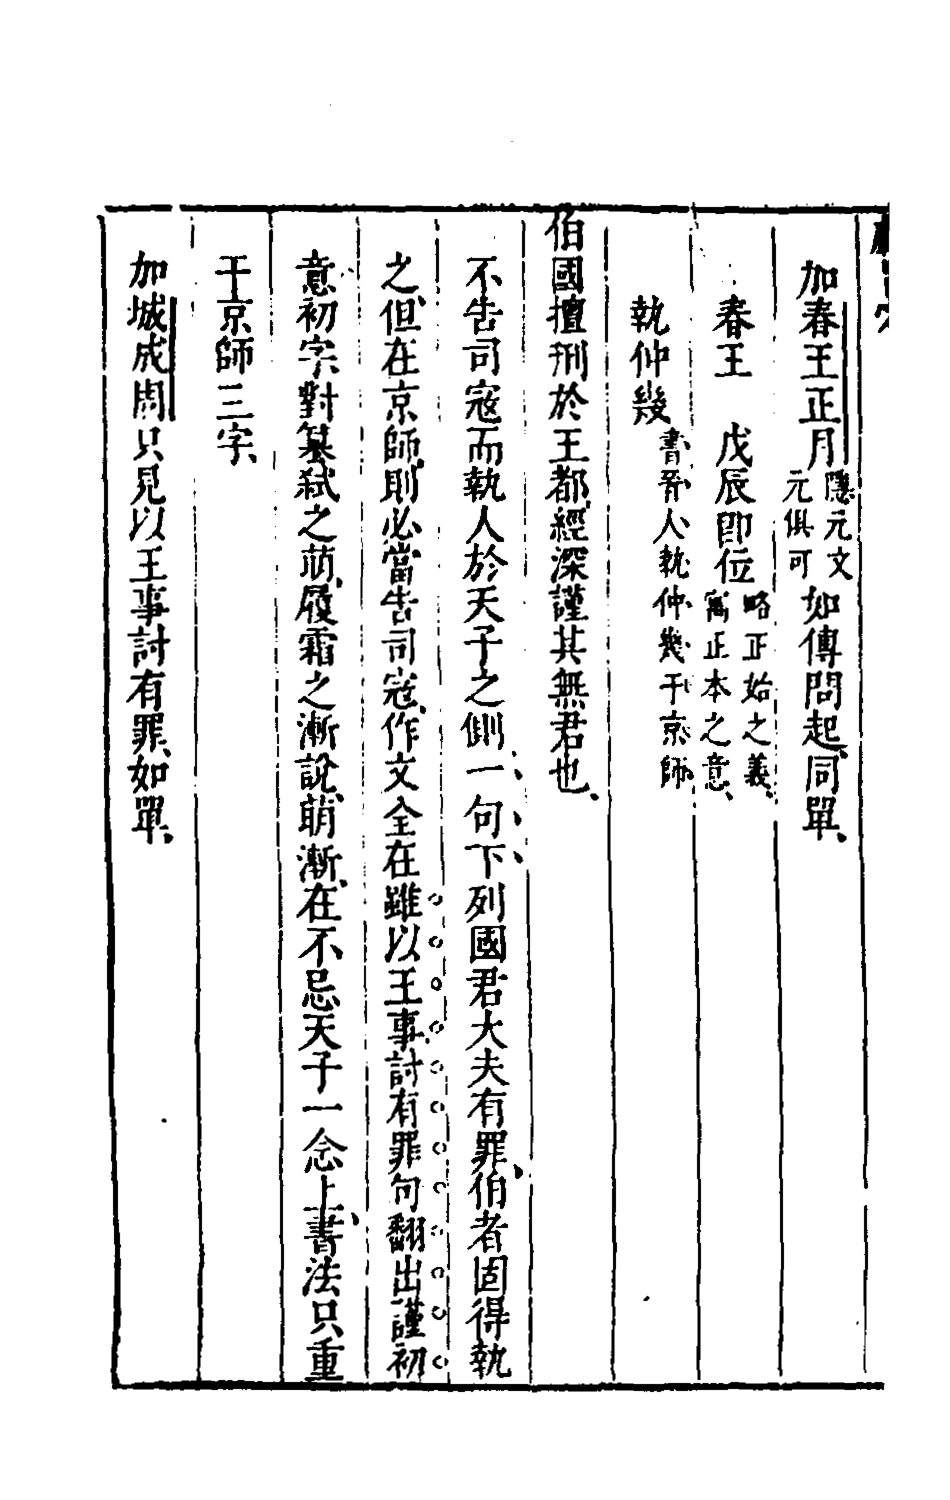 加春王正月隱元文元俱可如傳問起、同單、
春王　戊辰即位略正始之義、寓正本之意、
執仲幾書晉人執仲幾于京師
伯國擅刑於王都、經深謹其無君也、
不告司寇而執人於天子之側、一句、下、列國君大夫有罪、伯者固得執
之、但在京師、則必當告司寇、作文全在雖以王事討有罪句翻出、謹初
意初字、對篡弒之萌、履霜之漸說、萌漸、在不忌天子一念上、書法只重
于京師三字、
加城成周只見以王事討有罪、如單、